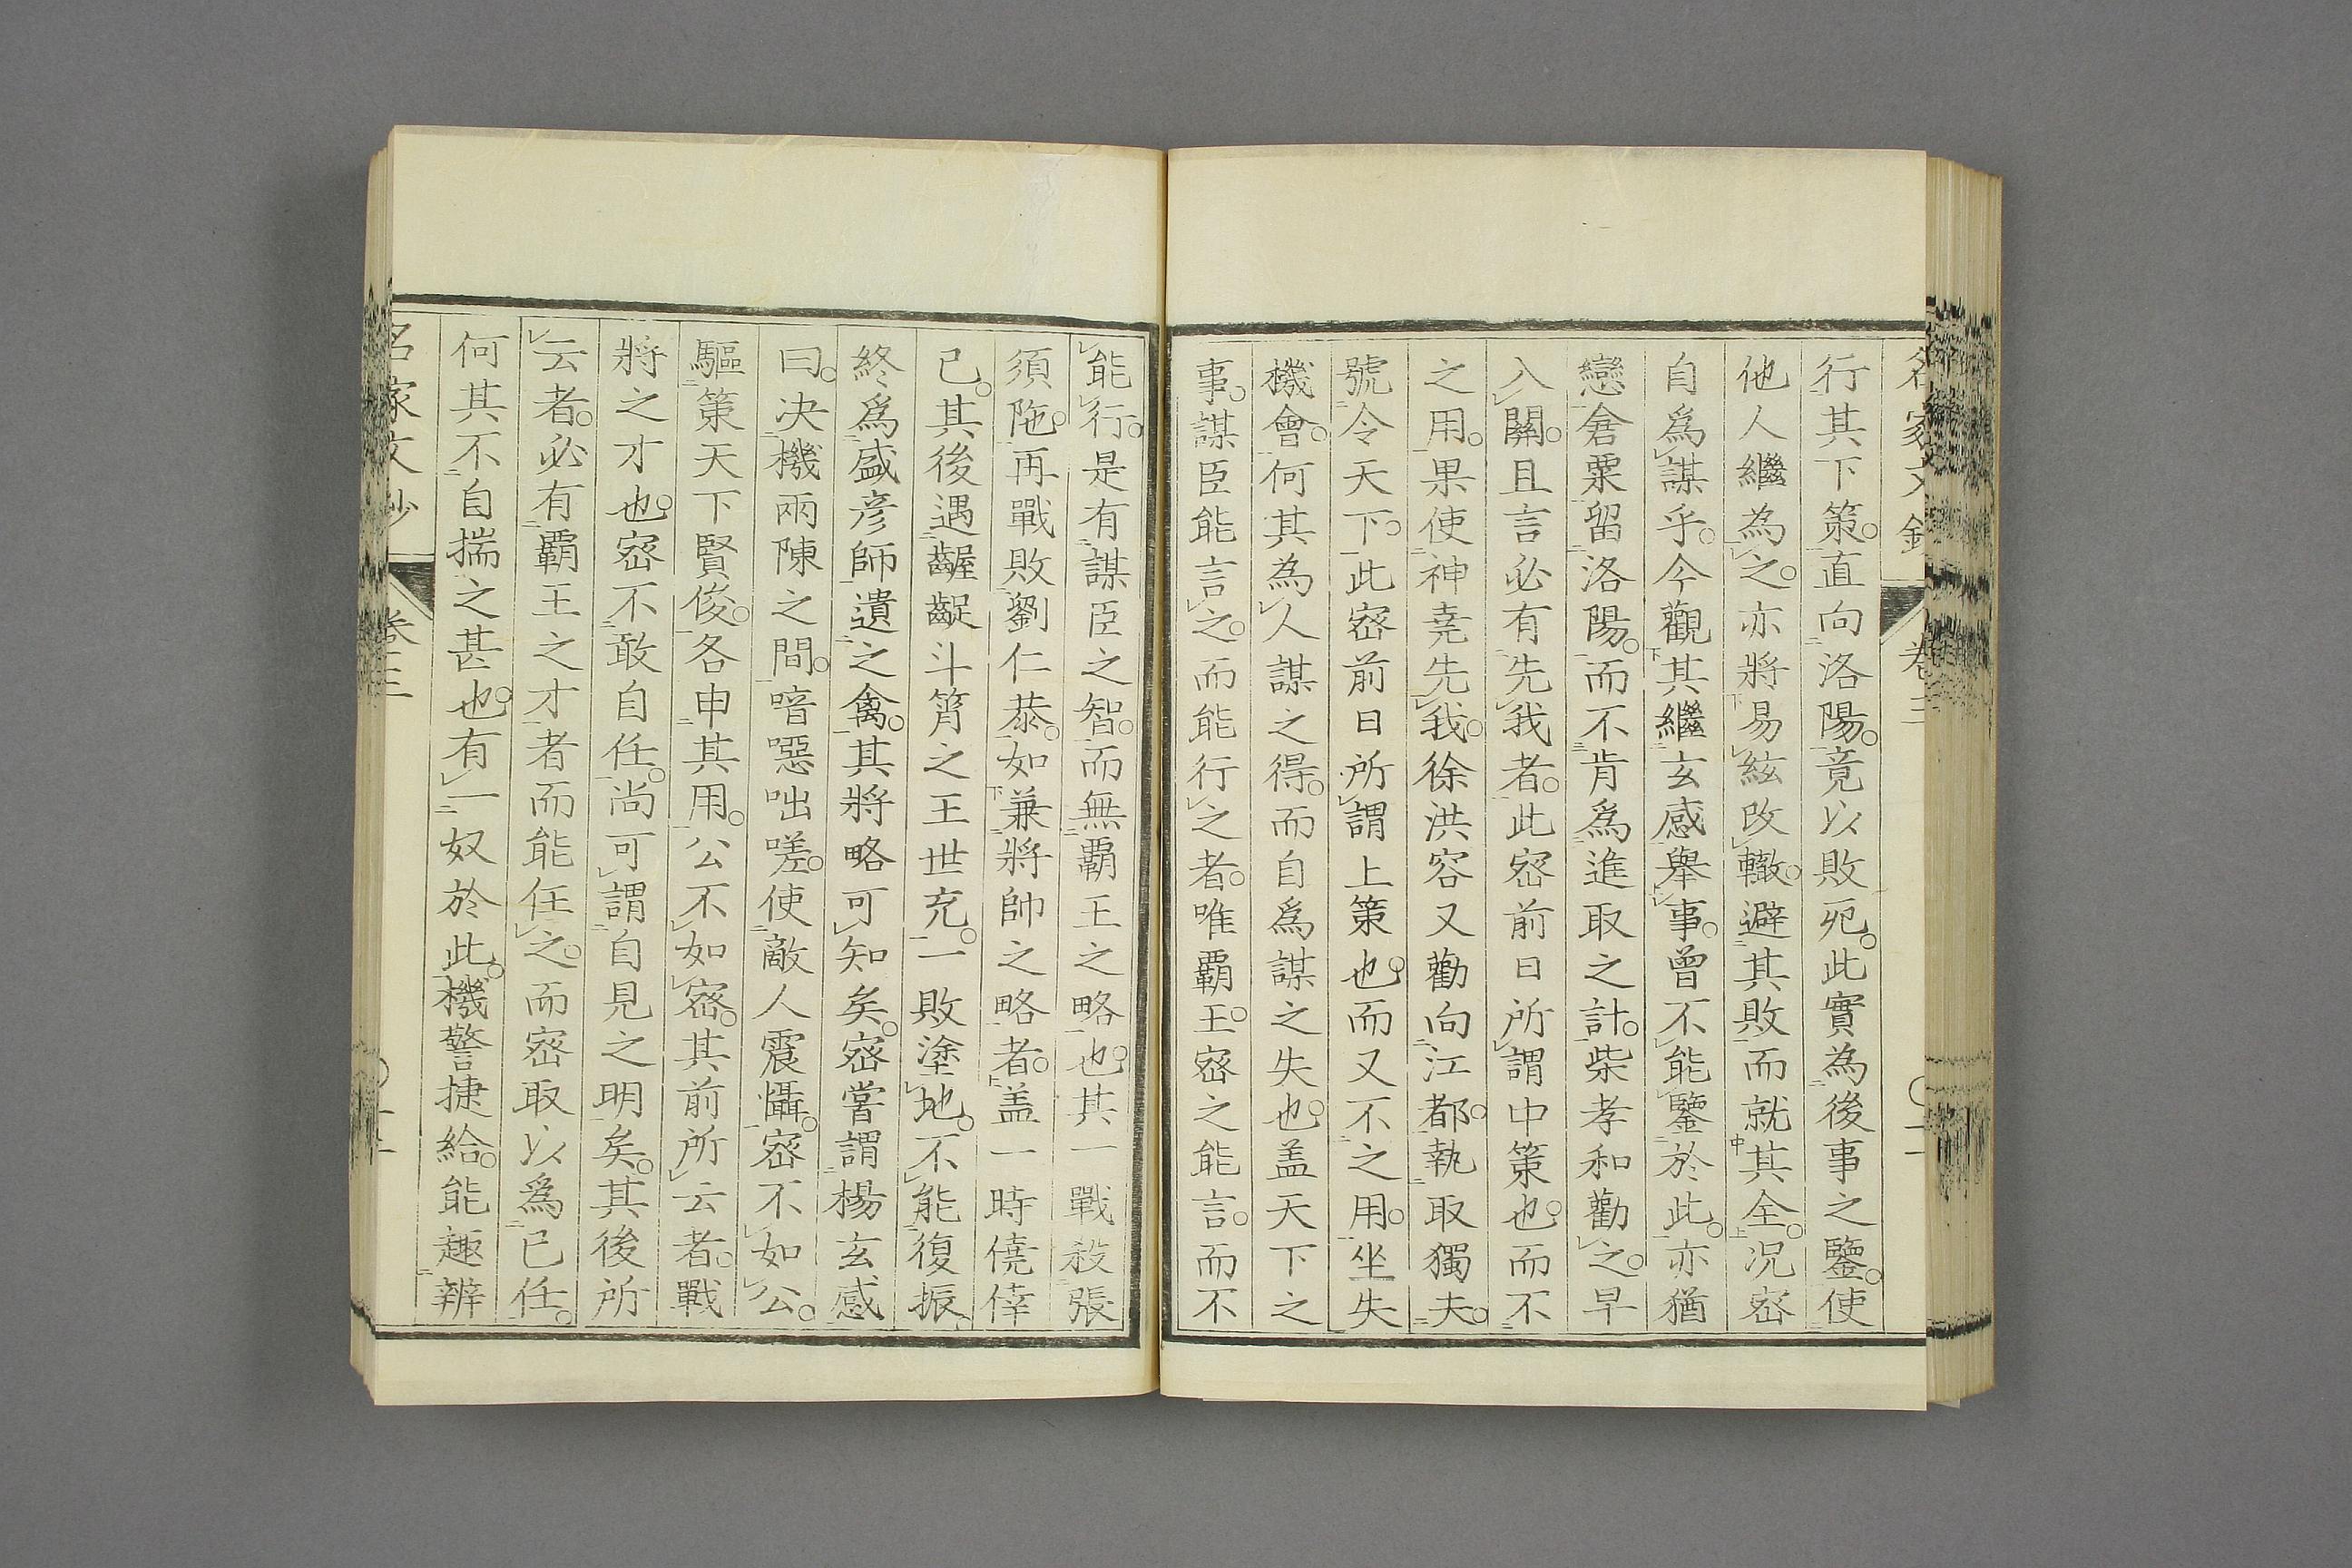 名家文鈔 卷三
行其下策。直向洛陽。竟以敗死。此實為後事之鑒。使
他人繼為之。亦將易絃改轍。避其敗而就其全。况宻
自爲謀乎。今觀其繼玄感舉事。曾不能鑒於此。亦猶
戀倉粟留洛陽。而不肯爲進取之計。柴孝和勸之。早
入關。且言必有先我者。此宻前日所謂中策也。而不
之用。果使神堯先我。徐洪容又勸向江都。執取獨夫。
號令天下。此宻前日所謂上策也。而又不之用。坐失
機會。何其為人謀之得。而自爲謀之失也。盖天下之
事。謀臣能言之。而能行之者。唯覇王。宻之能言。而不
能行。是有謀臣之智。而無覇王之略也。其一戰殺張
須陁。再戰敗劉仁恭。如兼將帥之略者。盖一時僥倖
已。其後遇齷齪斗筲之王世充。一敗塗地。不能復振。
終爲盛彦師遺之禽。其將略可知矣。宻嘗謂楊玄感
曰。决機兩陳之間。喑噁咄嗟。使敵人震懾。宻不如公。
驅策天下賢俊。各申其用。公不如宻。其前所云者。戰
將之才也。宻不敢自任。尚可謂自見之明矣。其後所
云者。必有覇王之才者而能任之。而宻取以爲已任。
何其不自揣之甚也。有一奴於此。機警捷給。能趣辨
名家文鈔 卷三